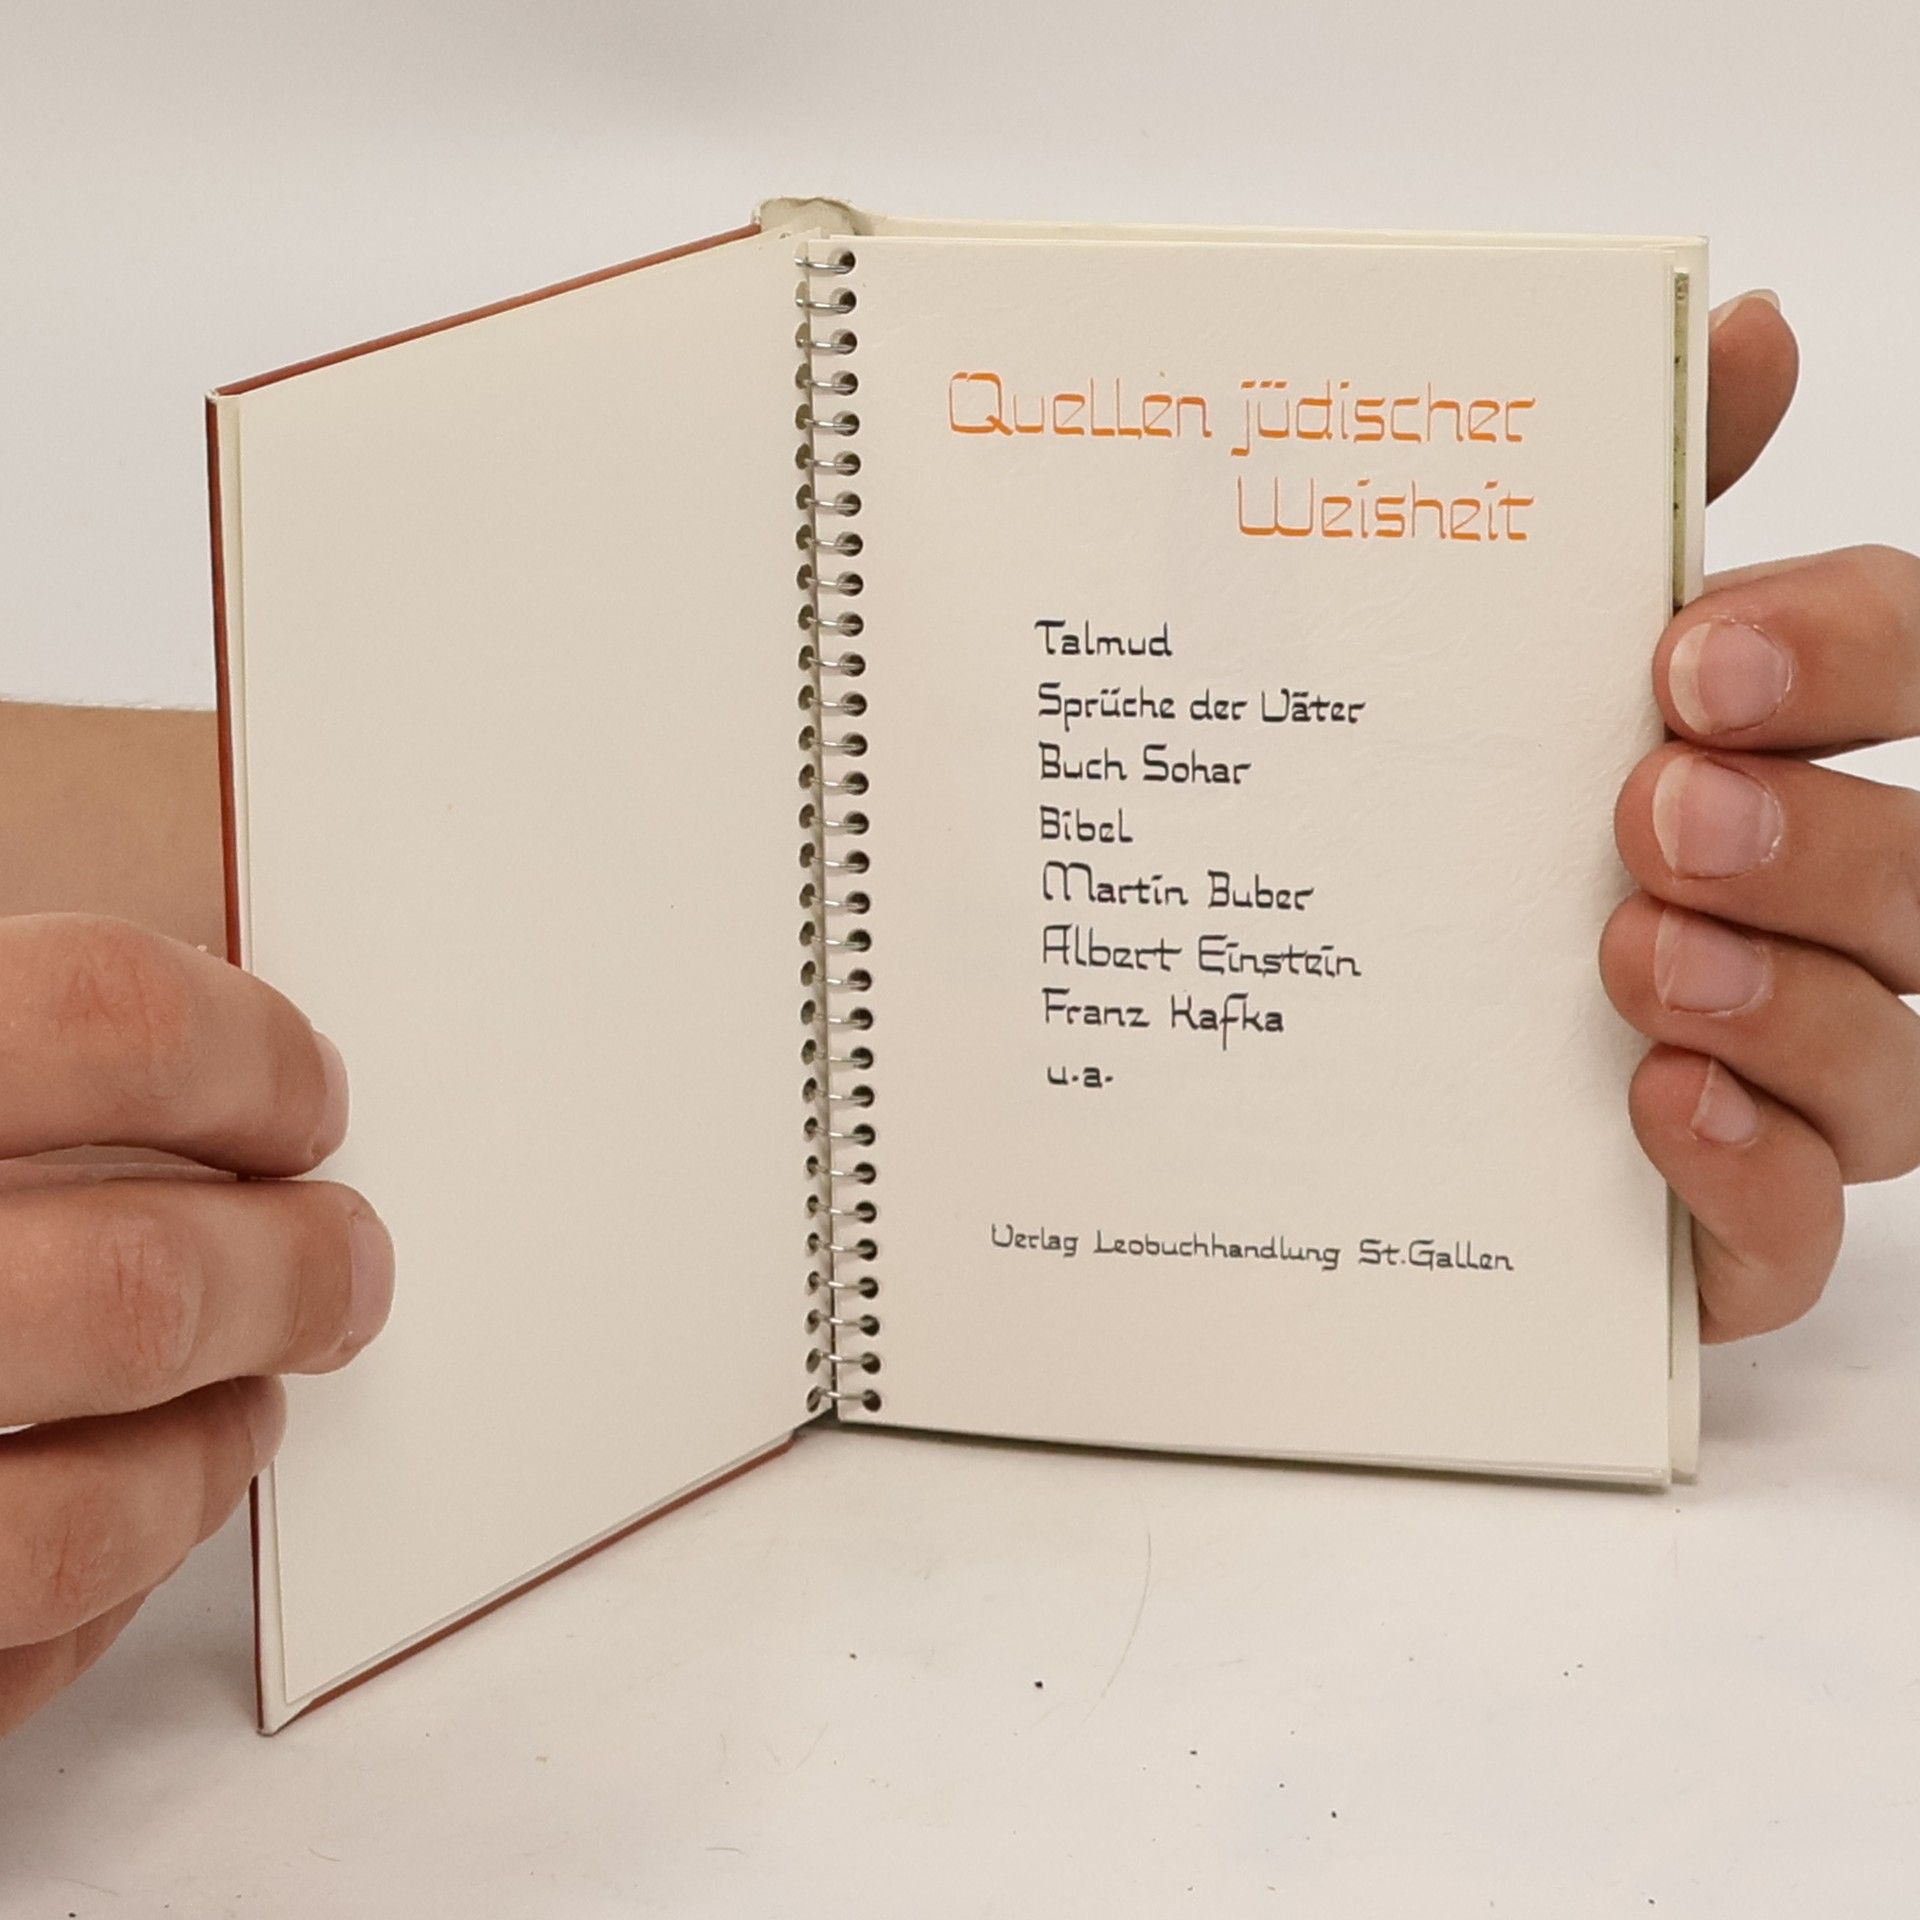 Quellen jüdischer
Weisheit
Talmud
Sprüche der Väter
Buch Sohar
Bibel
Martin Buber
Albert Einstein
Franz Kafka
u.a.
Verlag Leobuchhandlung St.Gallen